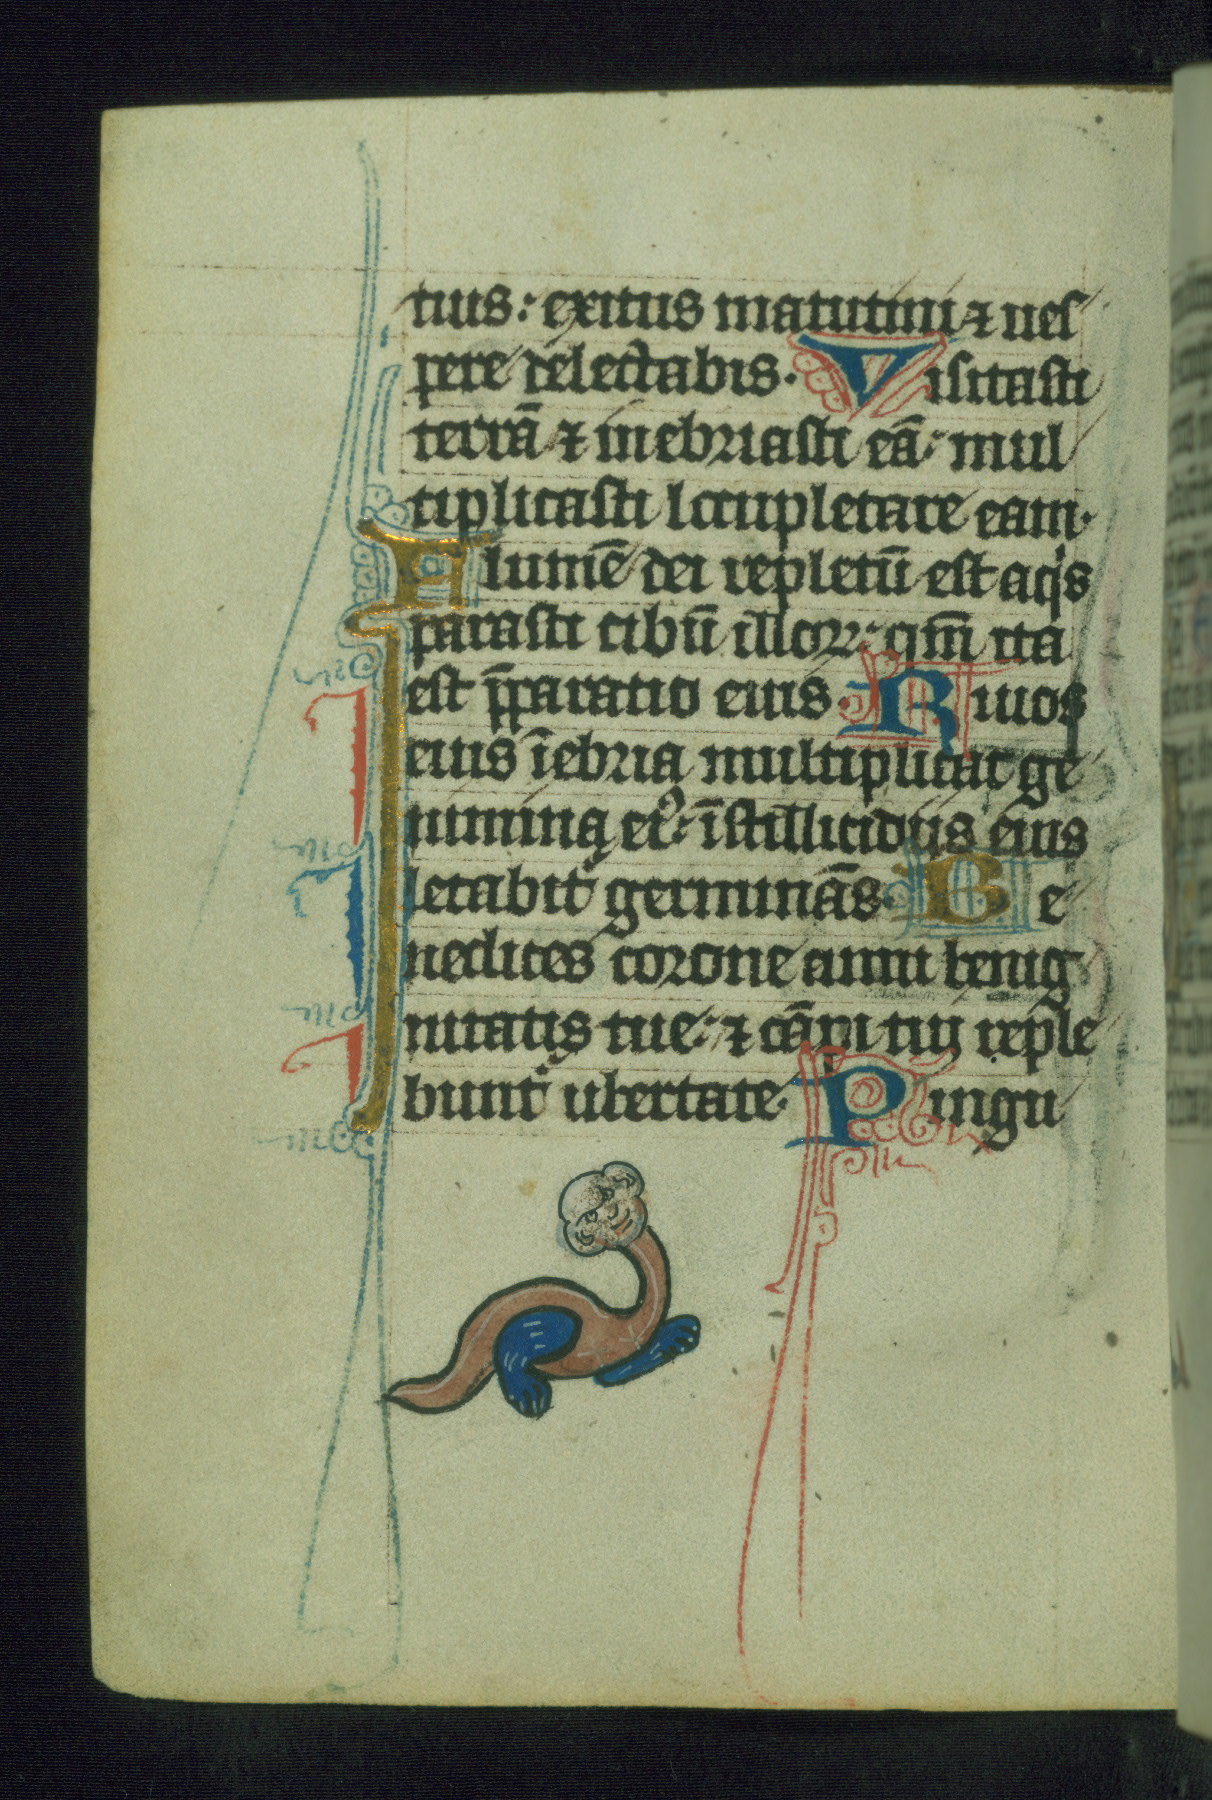 tuis: exitus matutini ⁊ ues
pere delectabis. Visitasti
terrã ⁊ inebriasti eã: mul
tiplicasti locupletare eam.
Flumẽ dei repletũ est aq͛s
parasti cibũ illoꝝ: qm̃ ita
est p̃paratio eius. Riuos
eius ĩebria multiplicat ge
nimina eiꝰ: ĩstillicidiis eius
letabit͛ germinãs. Be
nedices corone anni benig
nitatis tue: ⁊ cãpi tui reple
bunt͛ ubertate. Pingu